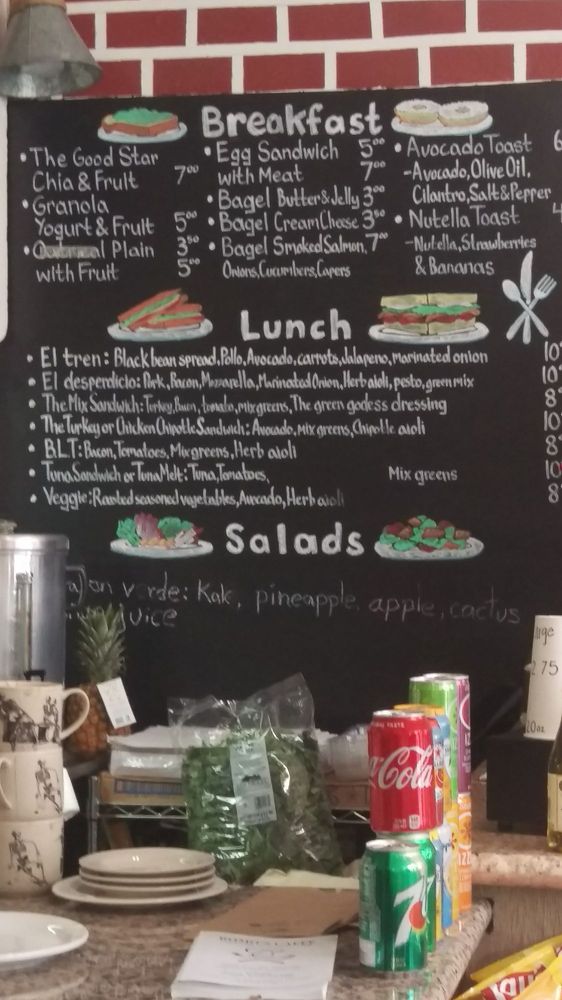 Breakfast
• The Good Star
Chia & Fruit 7⁰⁰
• Granola
Yogurt & Fruit 5⁰⁰
• Oatmeal Plain 3⁵⁰
with Fruit 5⁰⁰
• Egg Sandwich 5⁰⁰
with Meat 7⁰⁰
• Bagel Butter & Jelly 3⁰⁰
• Bagel Cream Cheese 3⁵⁰
• Bagel Smoked Salmon, 7⁰⁰
Onions, Cucumbers, Capers
• Avocado Toast 6
- Avocado, Olive Oil,
Cilantro, Salt & Pepper
• Nutella Toast 4
- Nutella, Strawberries
& Bananas
Lunch
• El tren: Black bean spread, Pollo, Avocado, carrots, Jalapeno, marinated onion 10
• El desperdicio: Pork, Bacon, Mozzarella, Marinated Onion, Herb aioli, pesto, green mix 10
• The Mix Sandwich: Turkey, Bacon, tomato, mix greens, The green godess dressing 8
• The Turkey or Chicken Chipotle Sandwich: Avocado, mix greens, Chipotle aioli 10
• B.L.T: Bacon, Tomatoes, Mix greens, Herb aioli 8
• Tuna Sandwich or Tuna Melt: Tuna, Tomatoes, Mix greens 10
• Veggie: Roasted seasoned vegetables, Avocado, Herb aioli 8
Salads
kale, pineapple, apple, cactus
juice
2.75
20oz
Coca-Cola
7